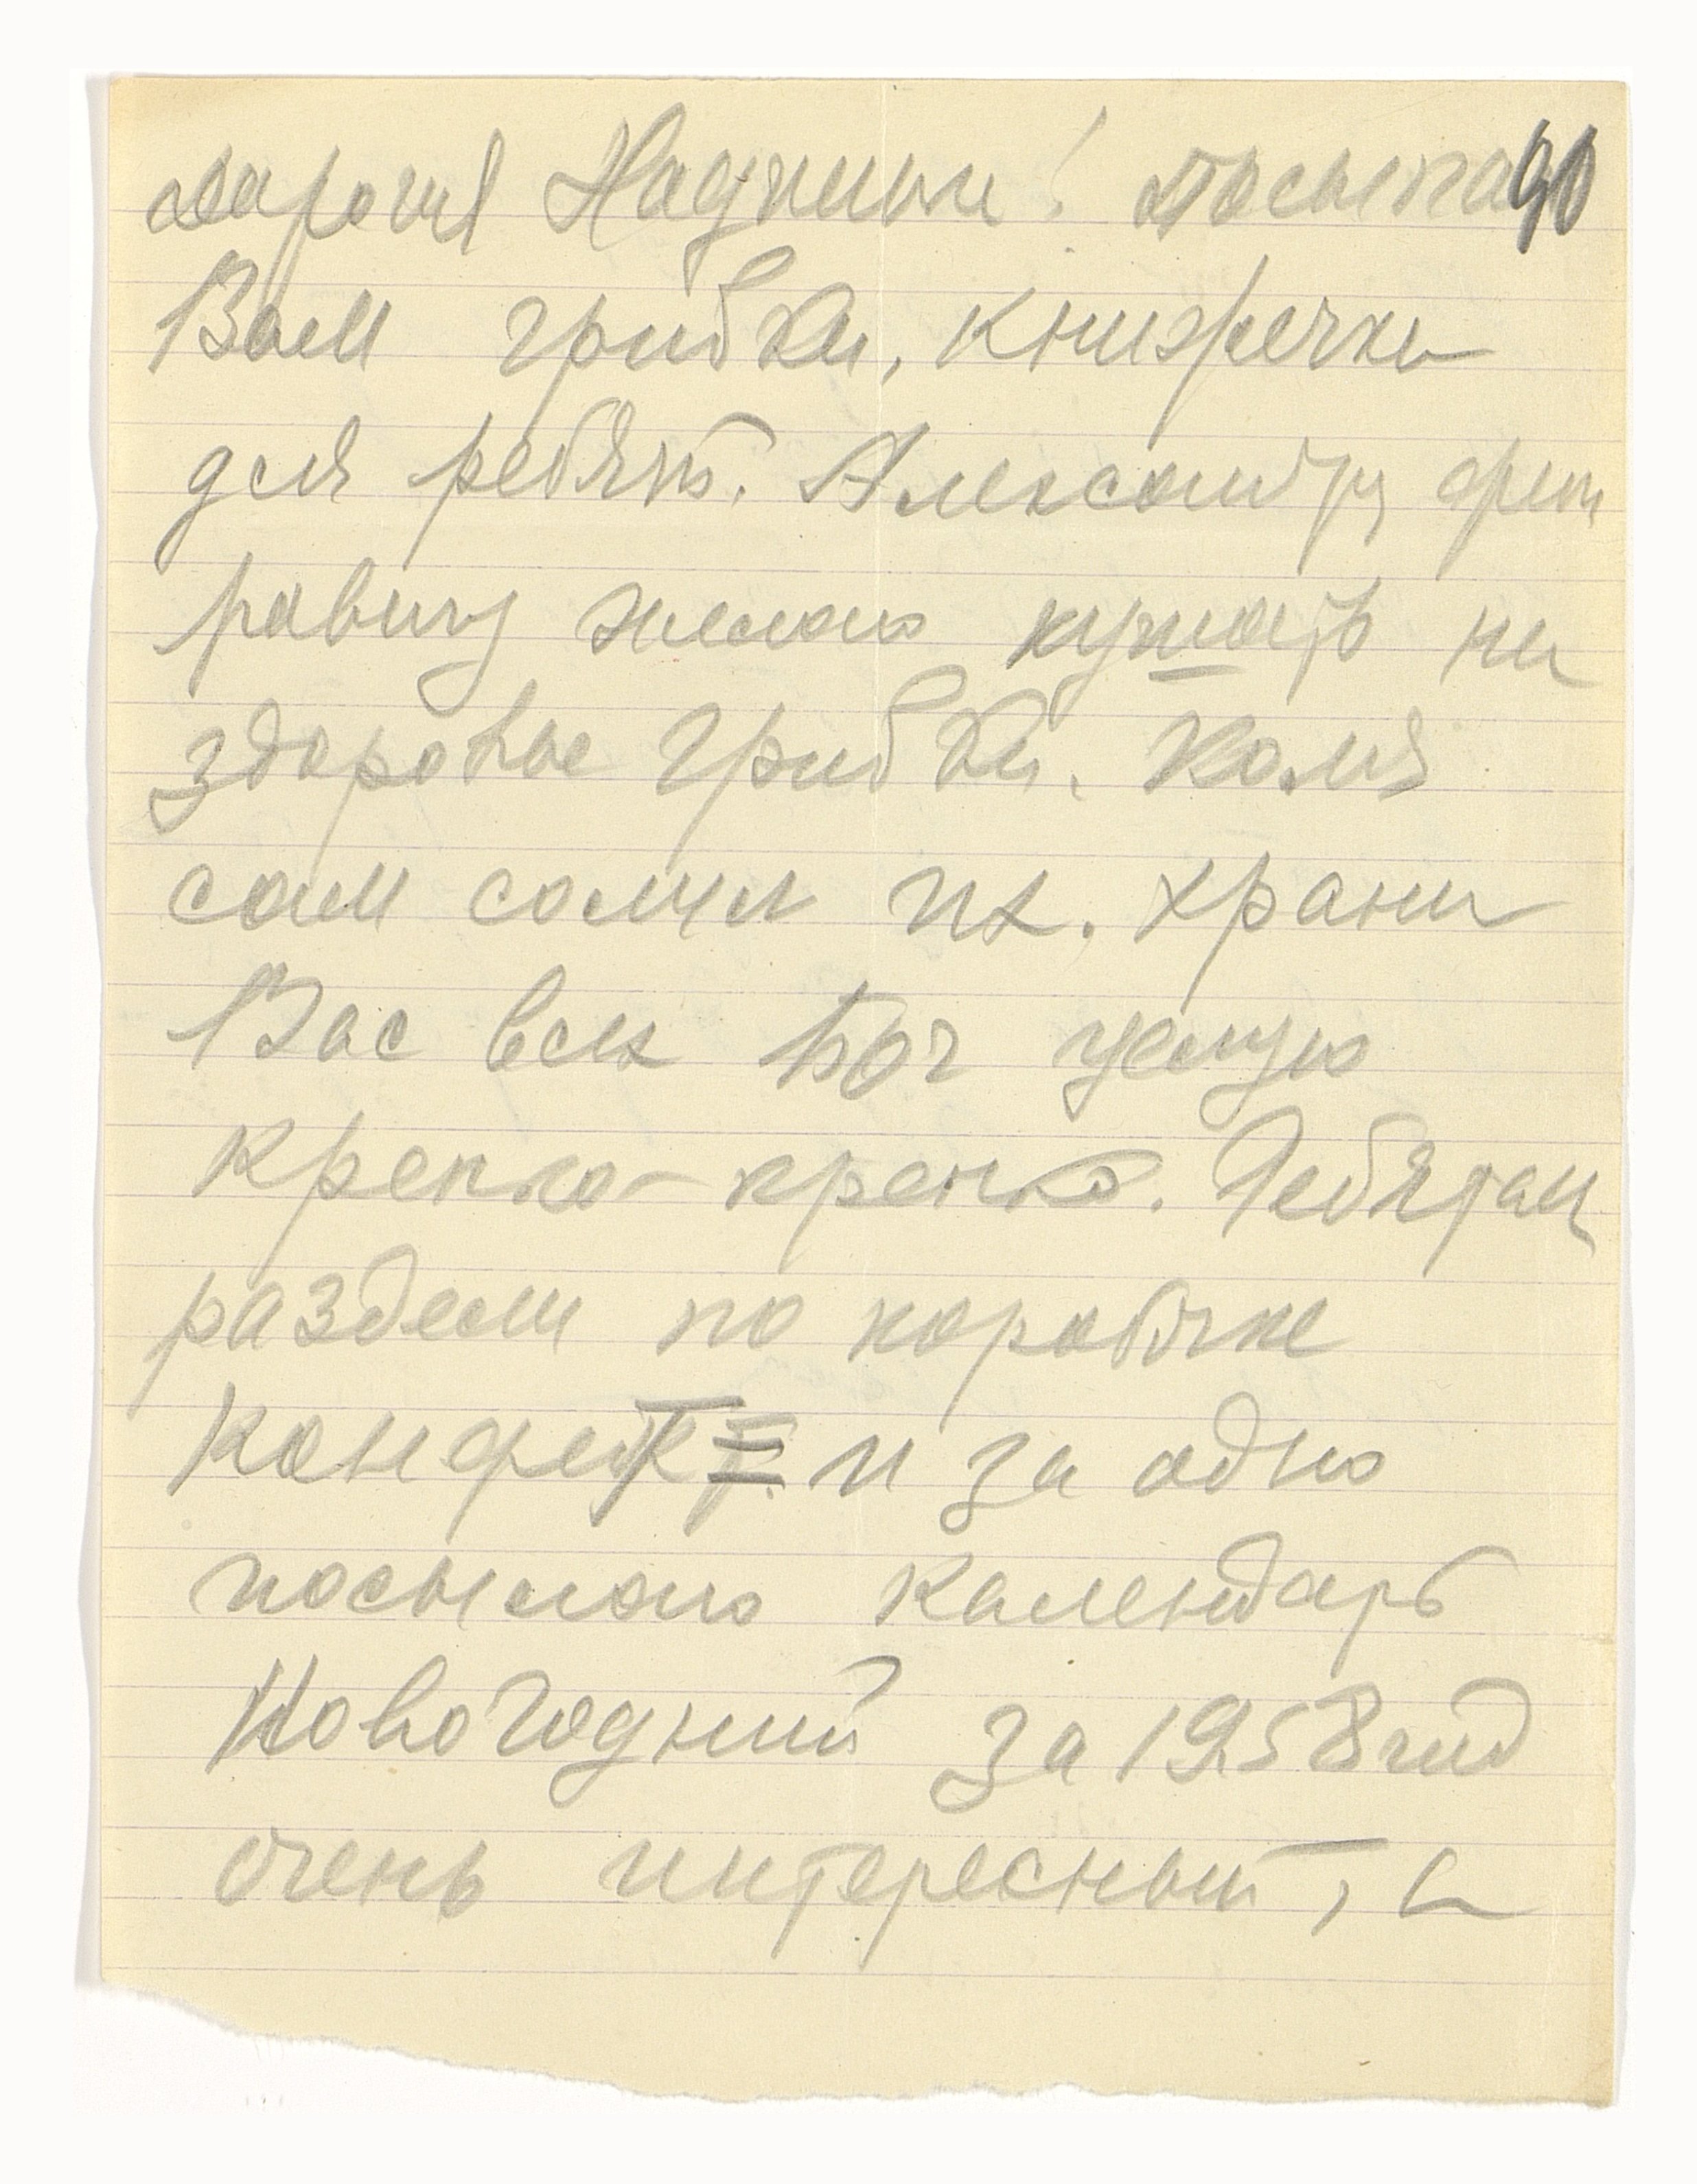 Дарогия Надчиньи! Посылаю 90
Вам грибки, книжечки
для ребят. Александру
ровичу желаю кушать на
здоровье грибки. Коля
сам солил их. храни
Вас всех Бог целую
крепко-крепко. Ребятам
раздели по коробочке
Конфет и за одно
посылаю календарь
Новогодний за 1958 год
очень интересный, а